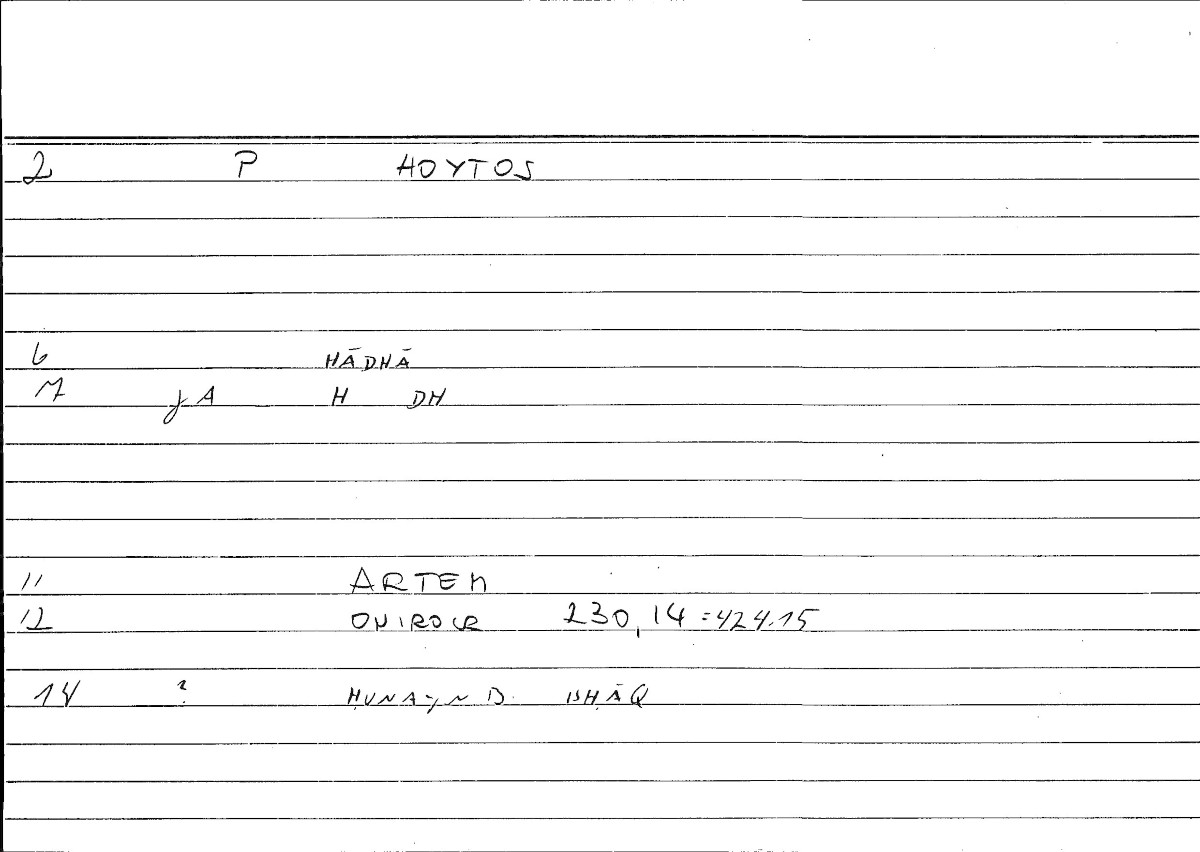 2 P HOYTOS
6 HĀDHĀ
7 jA H DH
11 ARTEM
12 ONIROCR 230,14 =424.15
14 ? ḤUNAYN B. ISḤĀQ